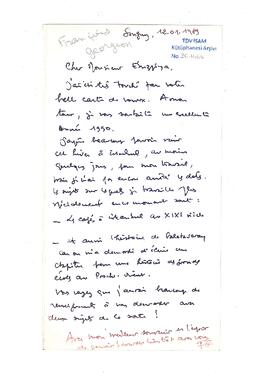 François
Georgeon
12.01.1989
TDV İSAM
Kütüphanesi Arşivi
No
Cher Monsieur
j'ai été touché par votre
belle carte de voeux. A mon
tour, je vous souhaite une excellente
année 1990.
J'espère beaucoup pouvoir venir
cet hiver à Istanbul, au moins
quelques jours, pour mon travail,
mais je n'ai pas encore arrêté de dates.
Le sujet sur lequel je travaille plus
spécialement en ce moment sont :
- Le café à Istanbul au XIXe siècle
- et aussi l'histoire de Galatasaray
car on m'a demandé d'écrire un
chapitre pour une histoire des grandes
écoles au Proche-Orient.
Vous voyez que j'aurai beaucoup de
renseignements à vous demander aux
deux sujets de ce sale !
Avec mon meilleur souvenir et l'espoir
de pouvoir vous